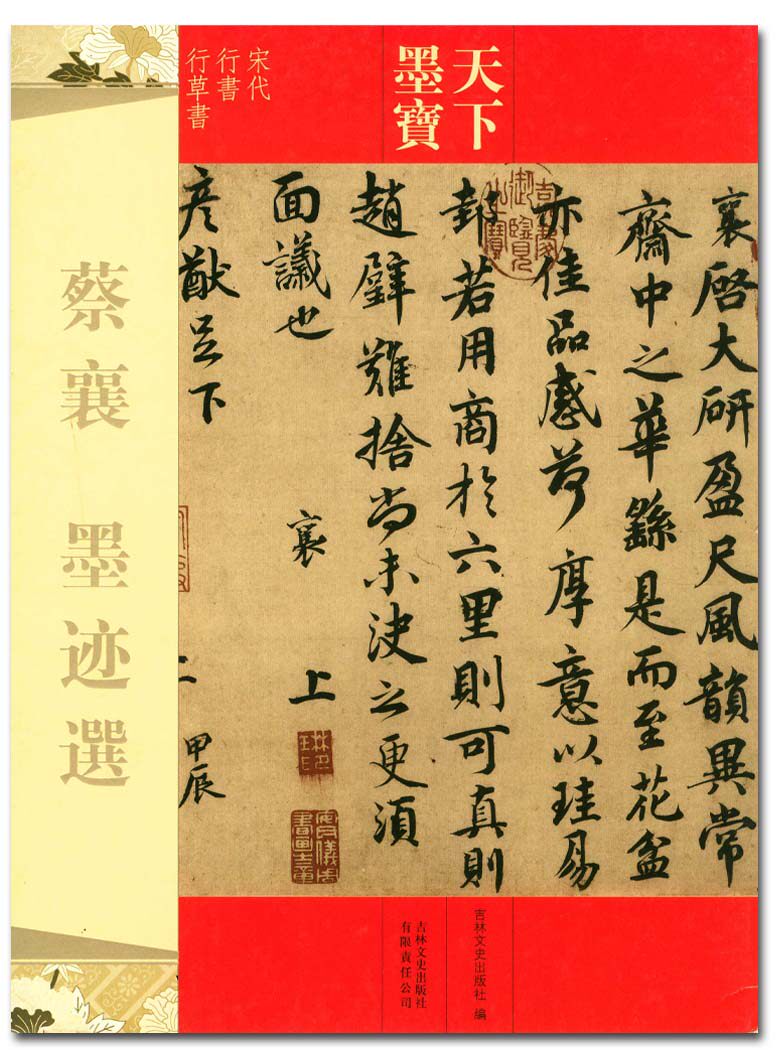 天下
墨寶
宋代
行書
行草書
蔡襄 墨迹選
襄啓大研盈尺風韻異常
齋中之華繇是而至花盆
亦佳品感荷厚意以珪易
邽若用商於六里則可真則
趙璧難捨尚未決之更須
面議也
襄 上
彦猷足下
甲辰
吉林文史出版社 編
吉林文史出版社
有限責任公司